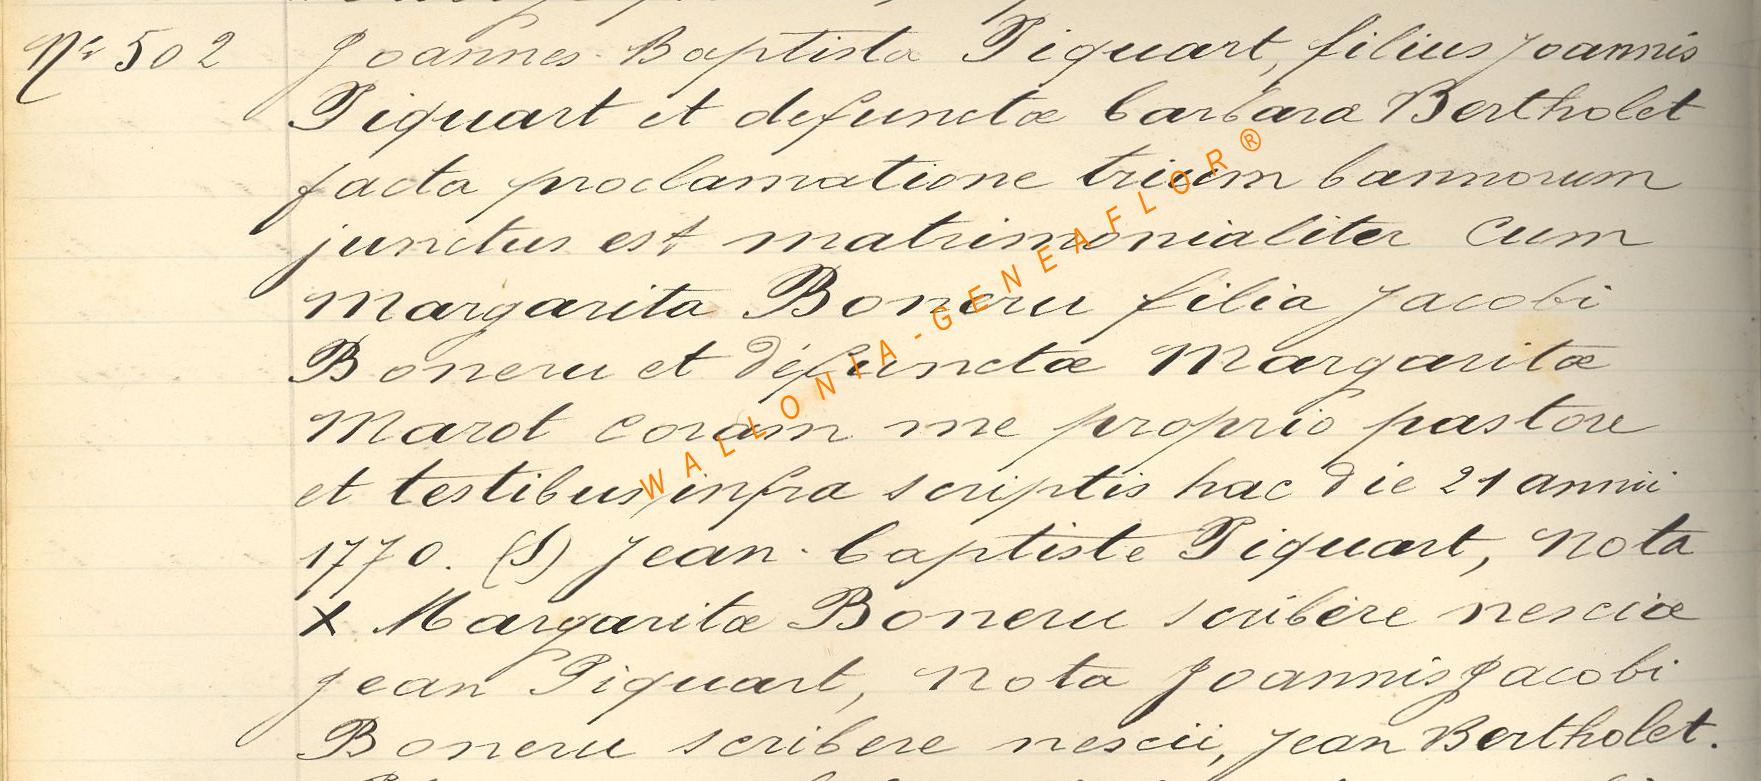 Nr 502 Joannes-Baptista Piquart, filius Joannis
Piquart et defunctæ barbara Bertholet
facta proclamatione trium bannorum
junctus est matrimonialiter cum
Margarita Boneru filia Jacobi
Boneru et défunctæ Margaritæ
Marot coram me proprio pastore
et testibus infra scriptis hac die 21 annii
1770. (S) Jean-baptiste Piquart, Nota
X Margaritæ Boneru scribère nesciæ
Jean Piquart, Nota Joannis Jacobi
Boneru scribere nescii, Jean Bertholet.
WALLONIA-GENEAFLOR®